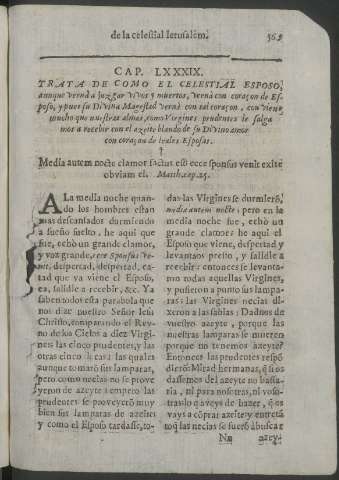 de la celestial Ierusalem. 365
CAP. LXXXIX.
TRATA DE COMO EL CELESTIAL ESPOSO,
aunque vernà a juzgar vivos y muertos, vernà con coraçon de Es-
poso, y pues su Divina Magestad vernà con tal coraçon, con viene
mucho que nuestras almas, como Virgines prudentes le salga
mos a recebir con el azeyte blando de su Divino amor
con coraçon de leales Esposas.
†
Media autem nocte clamor factus est: ecce sponsus venit exite
obviam ei. Matth. cap. 25.
A La media noche quan-
do los hombres estan
mas descansados durmiendo
a sueño suelto, he aqui que
fue, echò un grande clamor,
y voz grande, ecce Sponsus ve-
nit, despertad, despertad, ca-
tad que ya viene el Esposo,
ea, salidle a recebir, &c. Ya
saben todos esta parabola que
nos dize nuestro Señor Iesu
Christo, comparando el Rey-
no de los Cielos a diez Virgi-
nes las cinco prudentes, y las
otras cinco locas las quales
aunque tomarõ sus lamparas,
pero como necias no se prove
yeron de azeyte: empero las
prudentes se proveyerõ muy
bien sus lamparas de azeite:
y como el Esposo tardasse, to-
das las Virgines se durmierõ,
media autem nocte; pero en la
media noche fue, echò un
grande clamor: he aqui el
Esposo que viene, despertad y
levantaos presto, y salidle a
recebir: entonces se levanta-
mo todas aquellas Virgines,
y pusieron a punto sus lampa-
ras: las Virgines necias di-
xeron a las sabias: Dadnos de
vuestro azeyte, porque las
nuestras lamparas se mueren
porque no tenemos azeyte:
Entonces las prudentes respõ
dierõ: Mirad hermanas, q̃ si os
dassemos del azeyte no basta-
ria, ni para nosotras, ni voso-
tras: lo q̃ aveys de hazer, q̃ os
vays a cõprar azeyte: y entretã
to q̃ las necias se fuerõ à buscar
Nn azey-